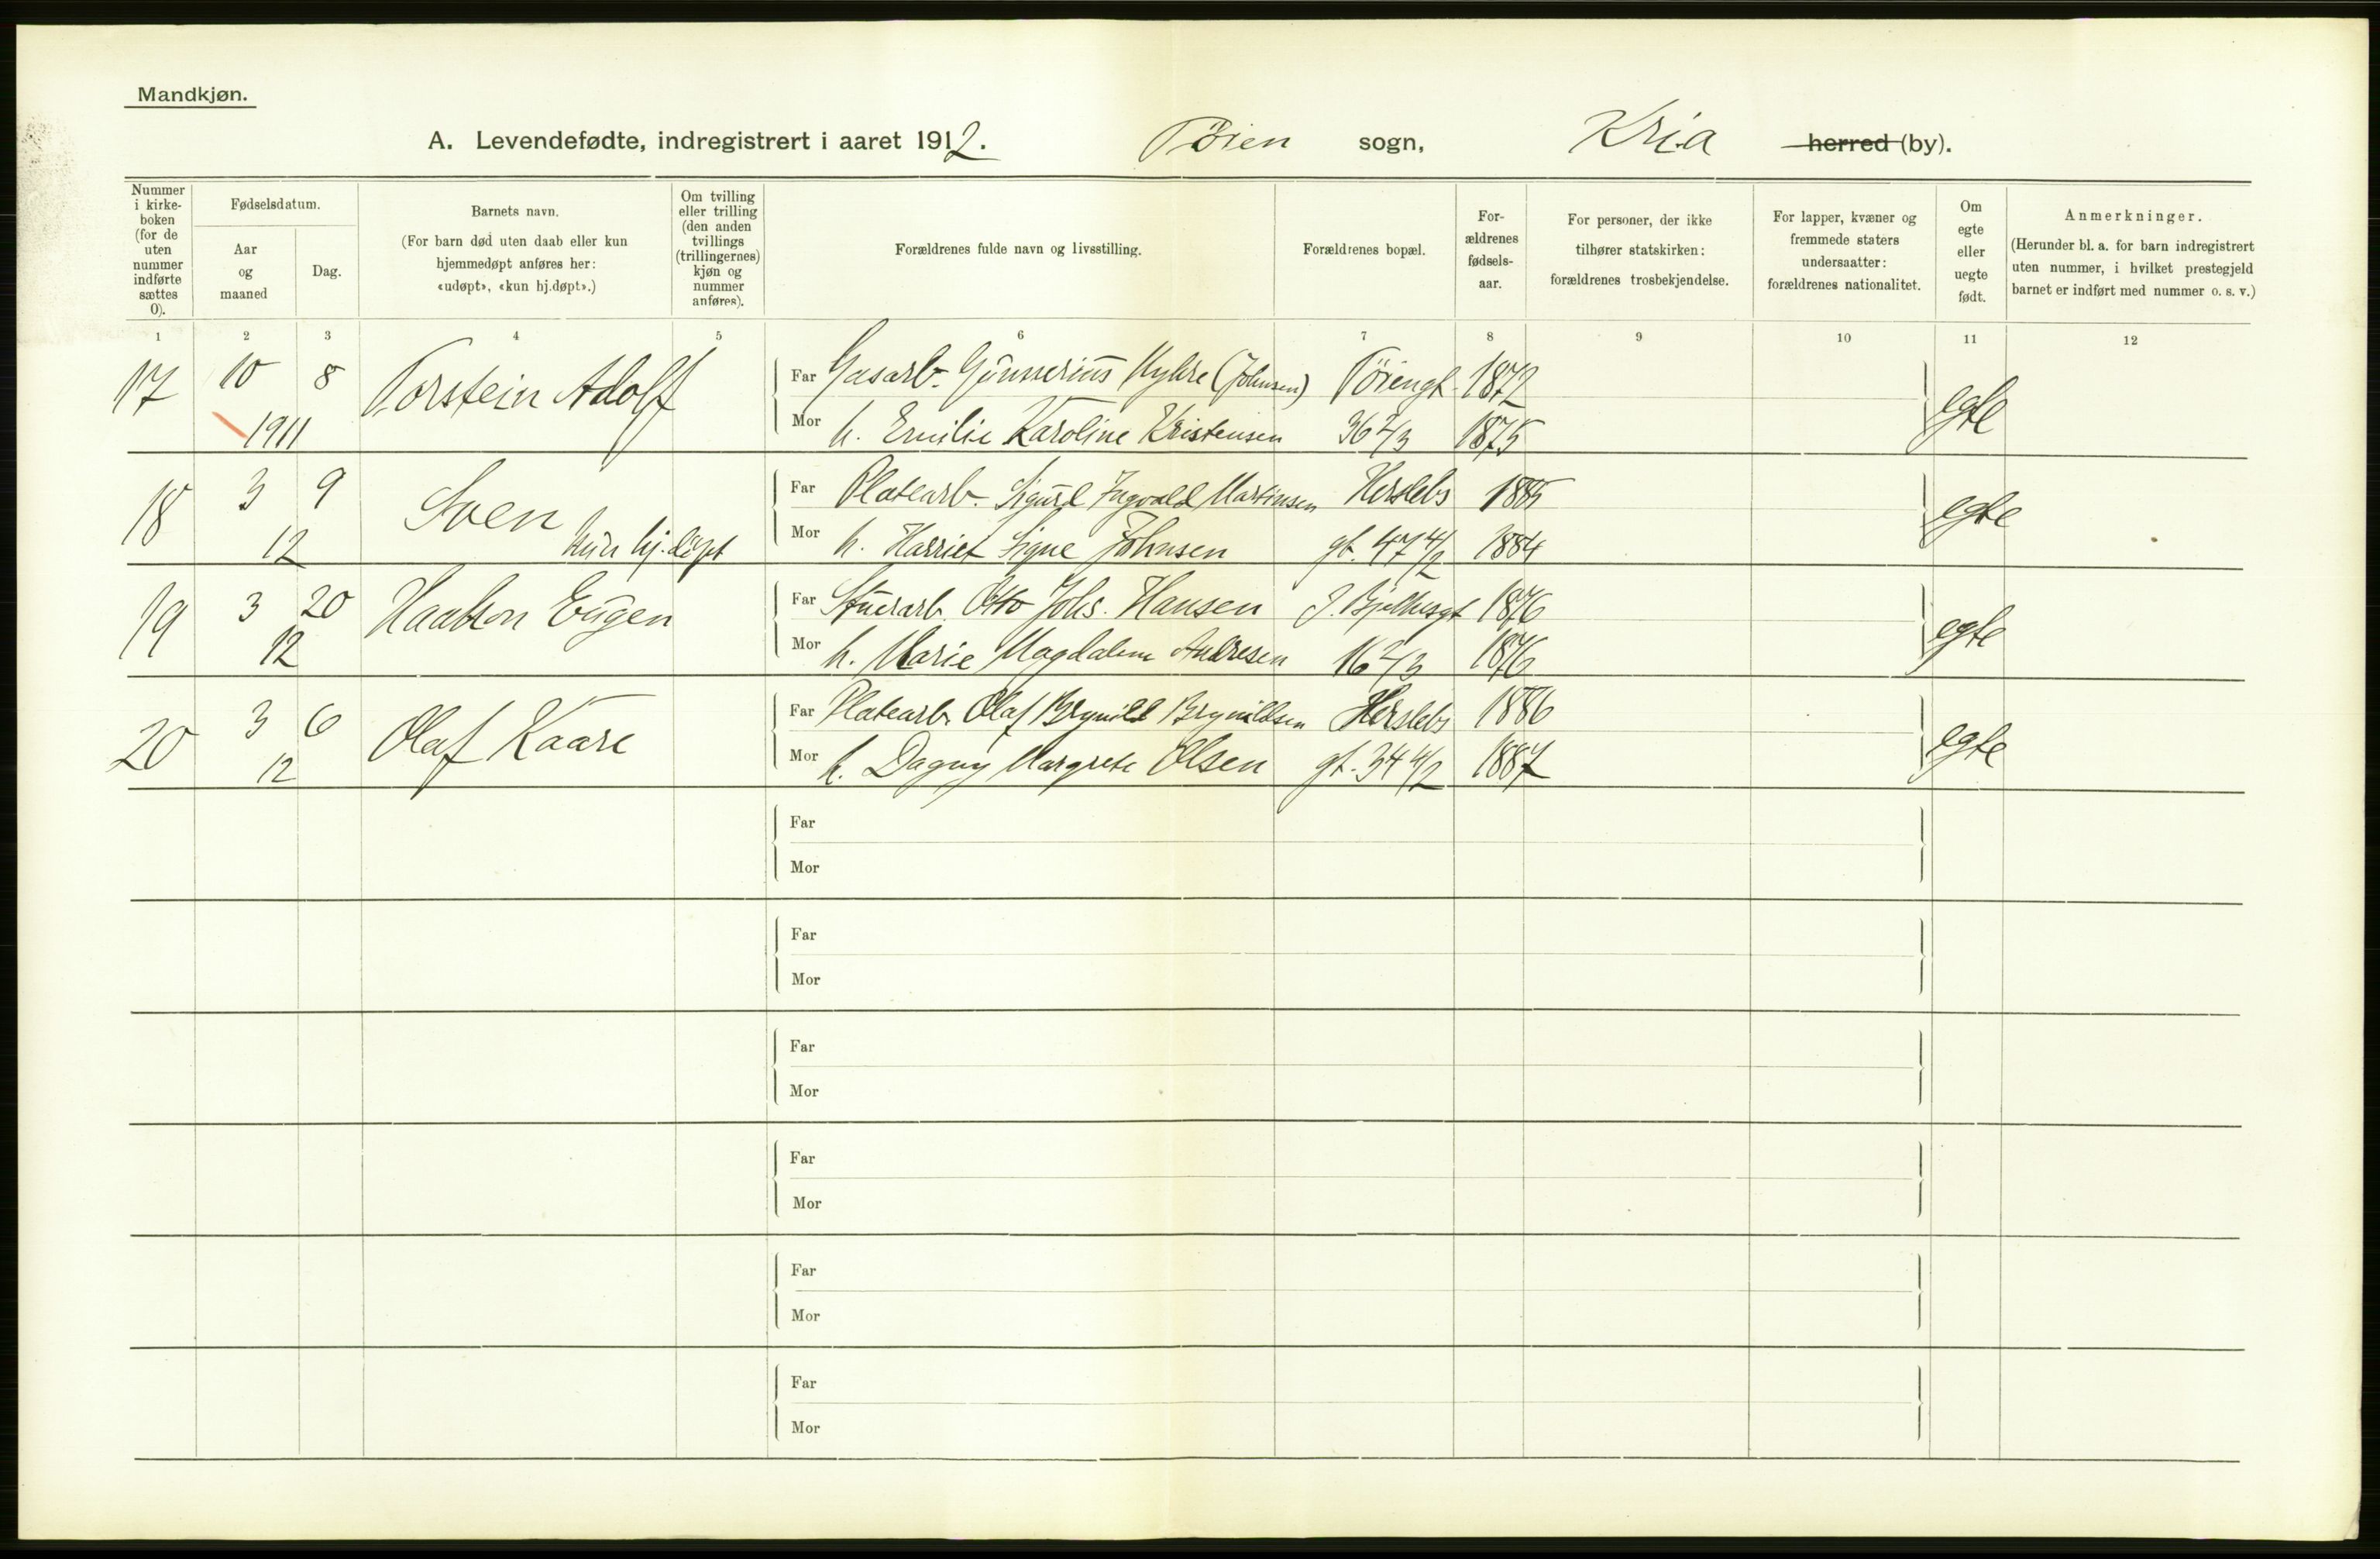 Mandkjøn.
A. Levendefødte, indregistrert i aaret 1912. Tøien sogn, Kria herred (by).
Nummer i kirke-boken (for de uten nummer indførte sættes 0).
Fødselsdatum.
Aar og maaned
Dag.
Barnets navn.
(For barn død uten daab eller kun hjemmedøpt anføres her: «udøpt», «kun hj.døpt».)
Om tvilling eller trilling (den anden tvillings (trillingernes) kjøn og nummer anføres).
Forældrenes fulde navn og livsstilling.
Forældrenes bopæl.
For-ældrenes fødsels-aar.
For personer, der ikke tilhører statskirken: forældrenes trosbekjendelse.
For lapper, kvæner og fremmede staters undersaatter: forældrenes nationalitet.
Om egte eller uegte født.
Anmerkninger.
(Herunder bl. a. for barn indregistrert uten nummer, i hvilket prestegjeld barnet er indført med nummer o. s. v.)
1 2 3 4 5 6 7 8 9 10 11 12
17 10 8 Torstein Adolf Far Gasarb. Gunnerius (Johnsen) Tøiengt. 1872 egte
1911 Mor h. Emilie Karoline Kristensen 36 2/3 1875
18 3 9 Sven Far Platearb. Sigurd Ingvald Martinsen Herslebs 1885 egte
12 kun hj.døpt Mor h. Harriet Signe Johnsen gt. 47 4/2 1884
19 3 20 Haakon Eugen Far Otto Johs. Hansen J. Bjelkesgt 1876 egte
12 Mor h. Marie Magdalene Andresen 16 2/3 1876
20 3 6 Olaf Kaare Far Platearb. Olaf Brynild Brynildsen Herslebs 1886 egte
12 Mor h. Dagny Margrete Olsen gt. 34 4/2 1887
Far
Mor
Far
Mor
Far
Mor
Far
Mor
Far
Mor
Far
Mor